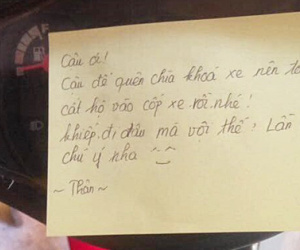 Cậu ơi!
Cậu để quên chìa khoá xe nên tớ
cất hộ vào cốp xe rồi nhé!
khiếp, đi đâu mà vội thế! Lần
chú ý nha
~ Thân ~